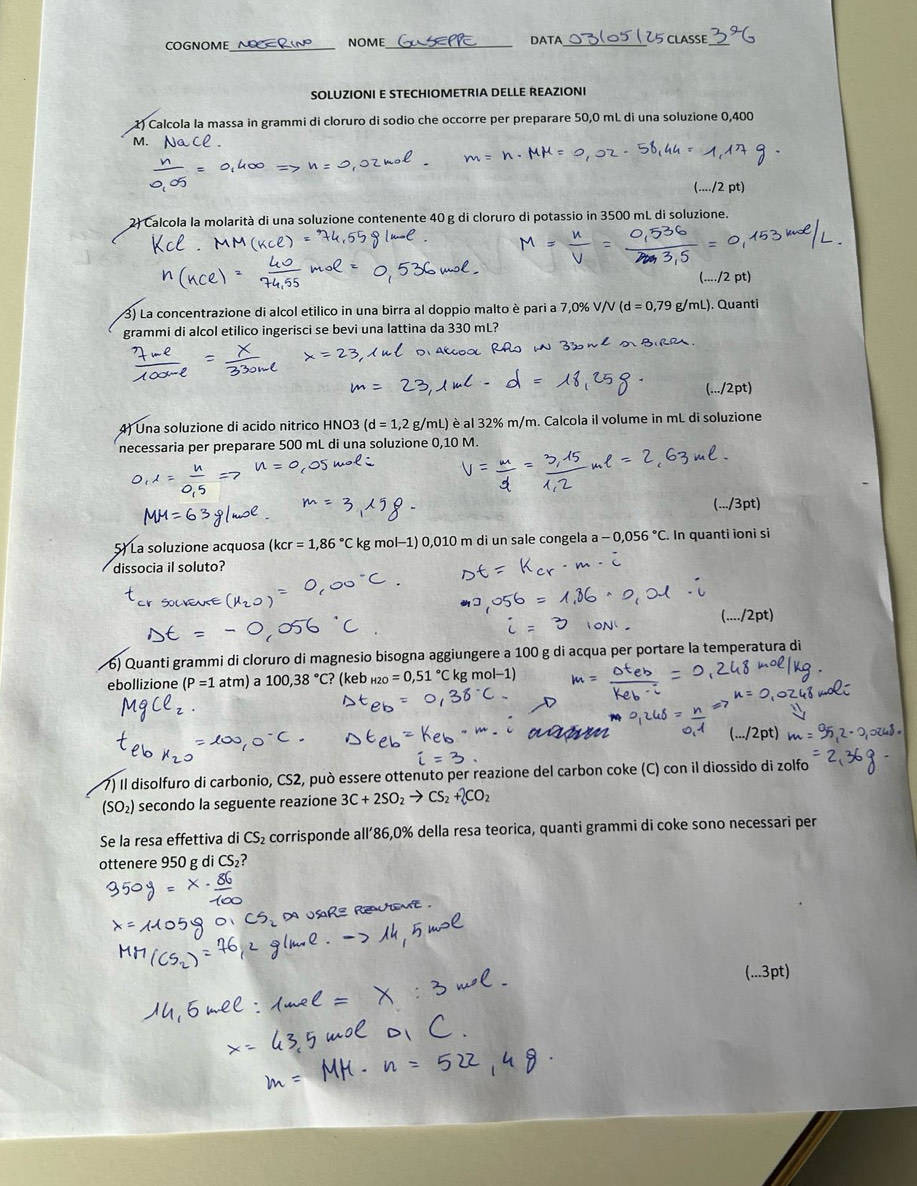 COGNOME NOCERINO NOME GIUSEPPE DATA 03/05/25 CLASSE 3°G
SOLUZIONI E STECHIOMETRIA DELLE REAZIONI
1) Calcola la massa in grammi di cloruro di sodio che occorre per preparare 50,0 mL di una soluzione 0,400
M. NaCl.
n/0,05 = 0,400 => n = 0,02 mol. m = n · MM = 0,02 · 58,44 = 1,17 g.
(..../2 pt)
2) Calcola la molarità di una soluzione contenente 40 g di cloruro di potassio in 3500 mL di soluzione.
KCl. MM(KCl) = 74,55 g/mol. M = n/V = 0,536/3,5 = 0,153 mol/L.
n(KCl) = 40/74,55 mol = 0,536 mol.
(..../2 pt)
3) La concentrazione di alcol etilico in una birra al doppio malto è pari a 7,0% V/V (d = 0,79 g/mL). Quanti
grammi di alcol etilico ingerisci se bevi una lattina da 330 mL?
7ml/100ml = x/330ml x = 23,1 ml DI ALCOOL IN 330 ml DI BIRRA.
m = 23,1 ml · d = 18,25 g.
(.../2pt)
4) Una soluzione di acido nitrico HNO3 (d = 1,2 g/mL) è al 32% m/m. Calcola il volume in mL di soluzione
necessaria per preparare 500 mL di una soluzione 0,10 M.
0,1 = n/0,5 => n = 0,05 moli V = m/d = 3,15/1,2 ml = 2,63 ml.
MM = 63 g/mol. m = 3,15 g.
(.../3pt)
5) La soluzione acquosa (kcr = 1,86 °C kg mol–1) 0,010 m di un sale congela a – 0,056 °C. In quanti ioni si
dissocia il soluto?
t cr SOLVENTE (H2O) = 0,00 °C. Δt = Kcr · m · i
0,056 = 1,86 · 0,01 · i
Δt = - 0,056 °C. i = 3 IONI.
(..../2pt)
6) Quanti grammi di cloruro di magnesio bisogna aggiungere a 100 g di acqua per portare la temperatura di
ebollizione (P =1 atm) a 100,38 °C? (keb H2O = 0,51 °C kg mol–1) m = Δteb/Keb · i = 0,248 mol/kg.
MgCl2. Δteb = 0,38 °C. 0,248 = n/0,1 => n = 0,0248 moli
teb H2O = 100,0 °C. Δteb = Keb · m · i (.../2pt) m = 95,2 · 0,0248 =
i = 3. = 2,36 g.
7) Il disolfuro di carbonio, CS2, può essere ottenuto per reazione del carbon coke (C) con il diossido di zolfo
(SO₂) secondo la seguente reazione 3C + 2SO₂ → CS₂ +2CO₂
Se la resa effettiva di CS₂ corrisponde all'86,0% della resa teorica, quanti grammi di coke sono necessari per
ottenere 950 g di CS₂?
950g = x · 86/100
x = 1105g DI CS2 DA USARE REALMENTE.
MM(CS2) = 76,2 g/mol. -> 14,5 mol
(...3pt)
14,5 mol : 1mol = x : 3 mol.
x = 43,5 mol DI C.
m = MM · n = 522,4 g.